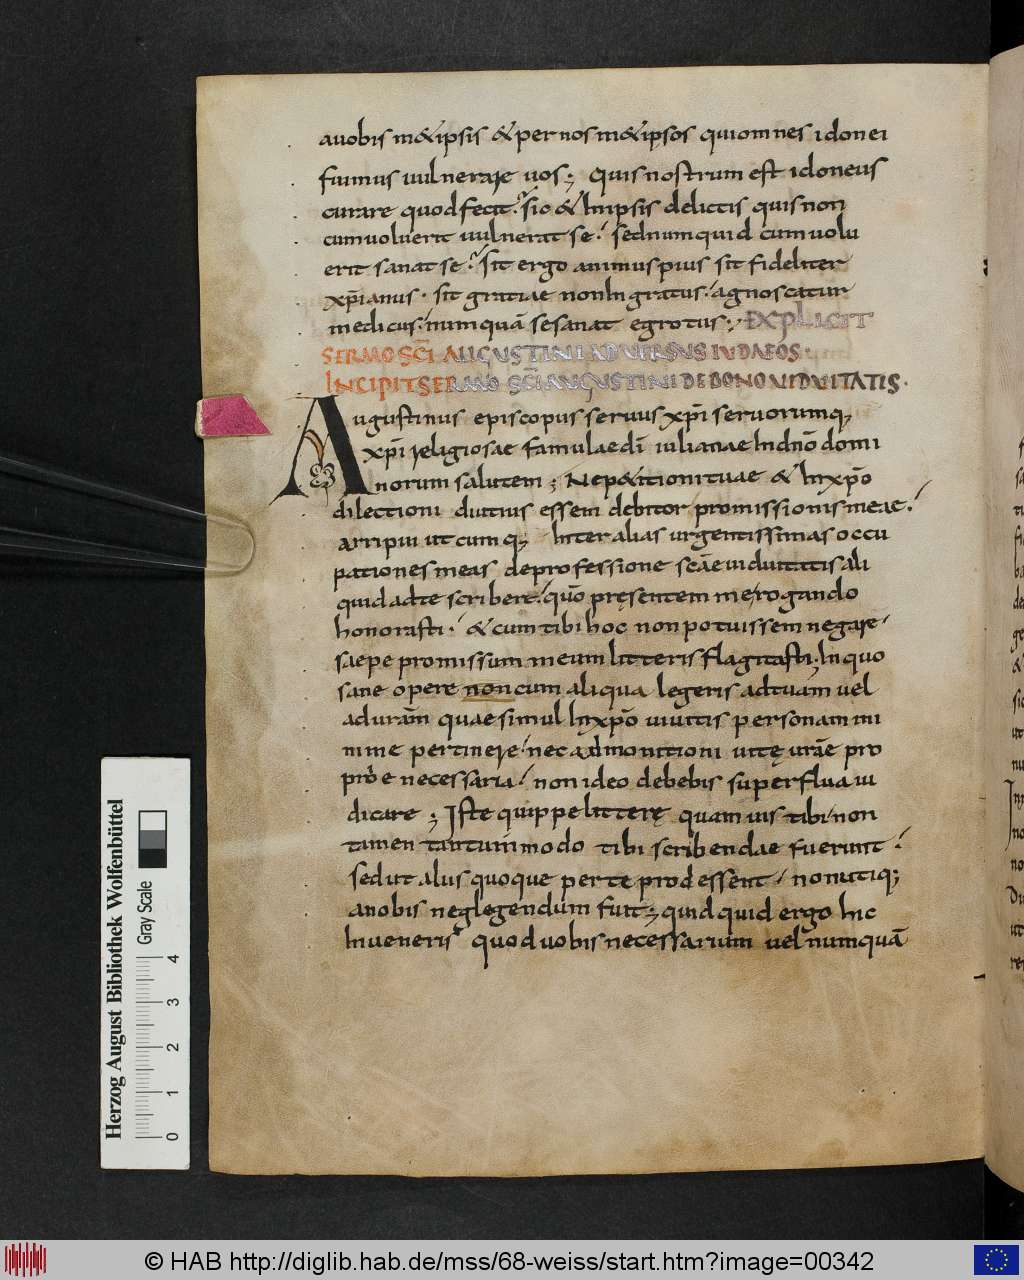 auobis in&ipsis & per nos in&ipsos qui omnes idonei
fuimus uulnerare uos; Quis nostrum est idoneus
curare quod fecit. sic & In ipsis delictis quis non
cum uoluerit uulnerat se. sed numquid cum uolu
erit sanat se. sit ergo animus pius sit fideliter
xp̄ianus. sit gratiae non Ingratus. agnoscatur
medicus. numquā se sanat egrotus; EXPLICIT
SERMO SC̄I AUGUSTINI ADUERSUS IUDAEOS.
INCIPIT SERMO SC̄I AUGUSTINI DE BONO UIDUITATIS.
Augustinus episcopus seruus xp̄i seruorumq;
xp̄i religiosae famulae dī iulianae In dn̄o domi
norum salutem; Ne p&itioni tuae & In xp̄o
dilectioni diutius essem debitor promissionis meae.
arripui ut cumq; Inter alias urgentissimas occu
pationes meas de professione scāe uiduitatis ali
quid ad te scribere. quō pręsentem me rogando
honorasti. & cum tibi hoc non potuissem negare
saepe promissum meum litteris flagitasti; In quo
sane opere non cum aliqua legeris ad tuam uel
ad urām quae simul In xp̄o uiuitis personam mi
nime pertinere. nec admonitioni uitę urāe pro
prie necessaria. non ideo debebis superflua iu
dicare; Iste quippe litterę quamuis tibi non
tamen tantummodo tibi scribendae fuerunt.
sed ut aliis quoque per te prodessent. non utiq;
a nobis neglegendum fuit; quidquid ergo hic
Inueneris quod uobis necessarium uel numquā
Herzog August Bibliothek Wolfenbüttel
Gray Scale
0 1 2 3 4
© HAB http://diglib.hab.de/mss/68-weiss/start.htm?image=00342